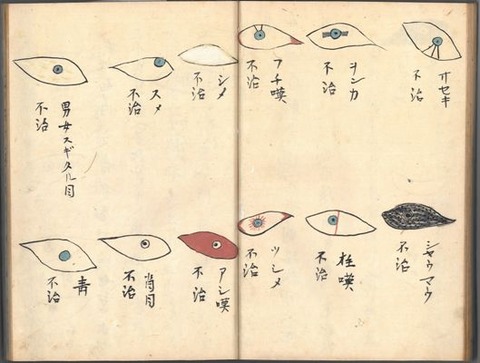 オセキ
不治
ヲシカ
不治
フチ嘆
不治
シメ
不治
スメ
不治
男女スギタル目
不治
シヤウマウ
不治
柱嘆
不治
ツシメ
不治
アシ嘆
不治
肖目
不治
青
不治